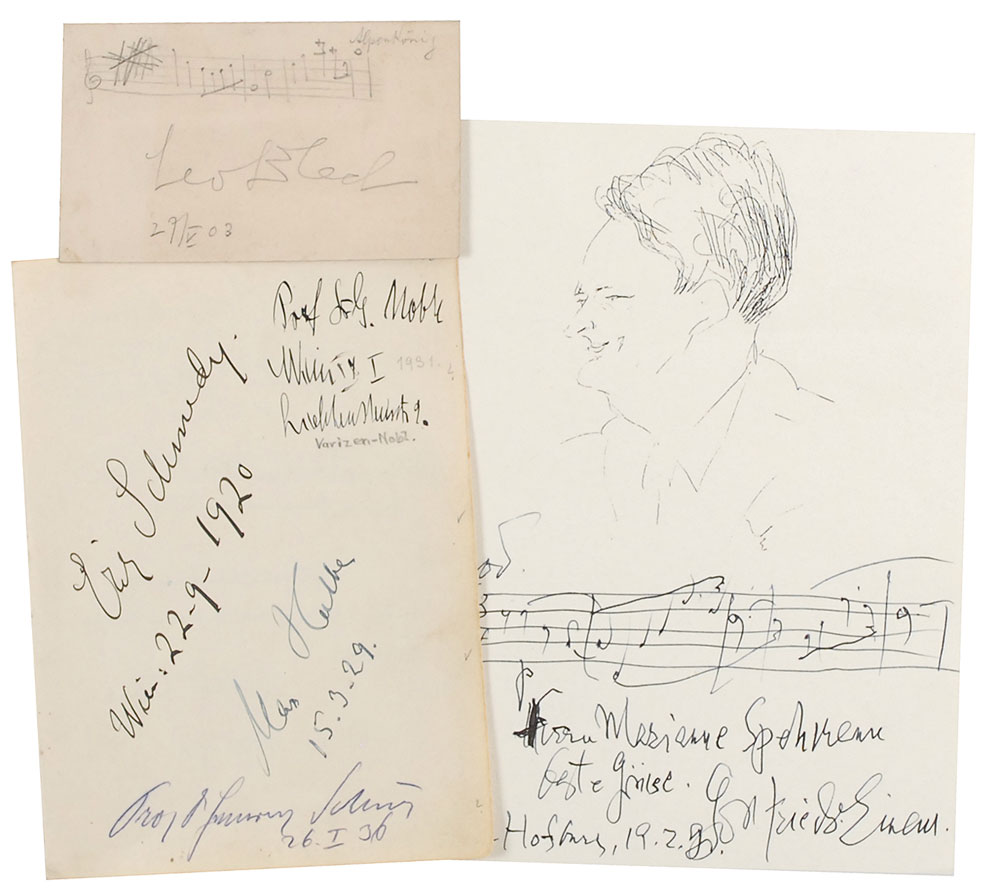 Alpenkönig
Leo Blech
29/V 03
Prof Dr G. Nobl
Wien IX I 1931.
Varizen-Nobl.
Erik Schmedes
Wien: 22-9-1920
Max Halbe
15.3.29.
Prof Dr
26.I 36
p
Frau Marianne
beste Grüsse. Gottfried v. Einem.
Hofburg, 19.2.